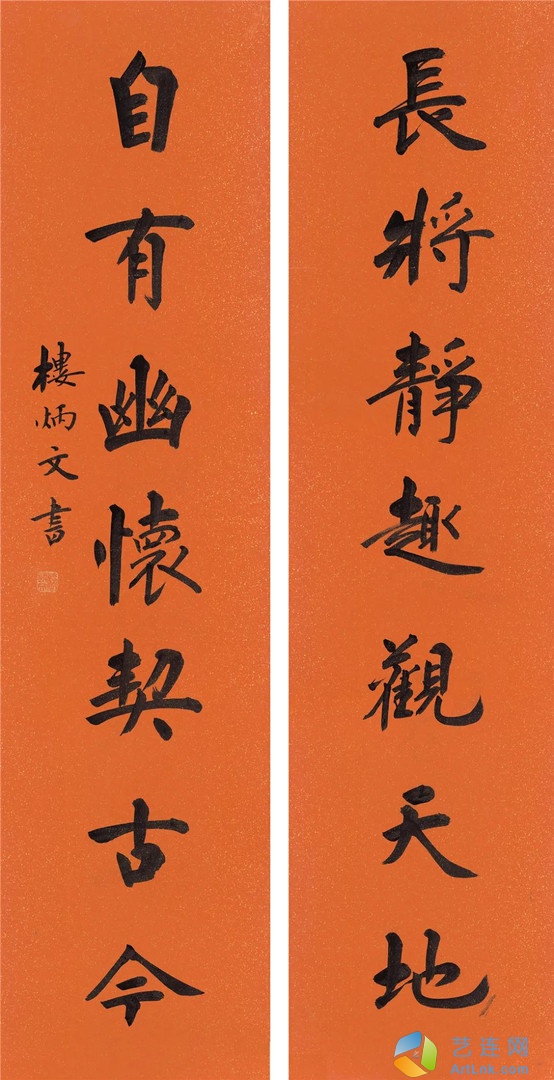 長將靜趣觀天地
自有幽懷契古今
樓炳文書
艺连网
ArtLok.com